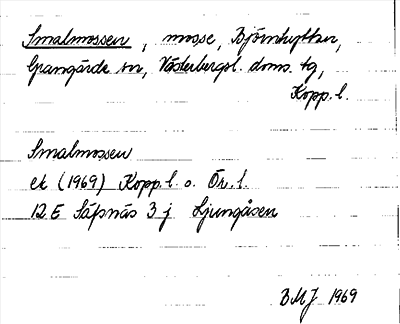 Smalmossen, mosse, Björnhyttan,
Grangärde sn, Västerbergsl. doms. tg,
Kopp. l.
Smalmossen
ek (1969) Kopp. l. o. Ör. l.
12 E Säfsnäs 3 j Ljungåsen
BMJ 1969